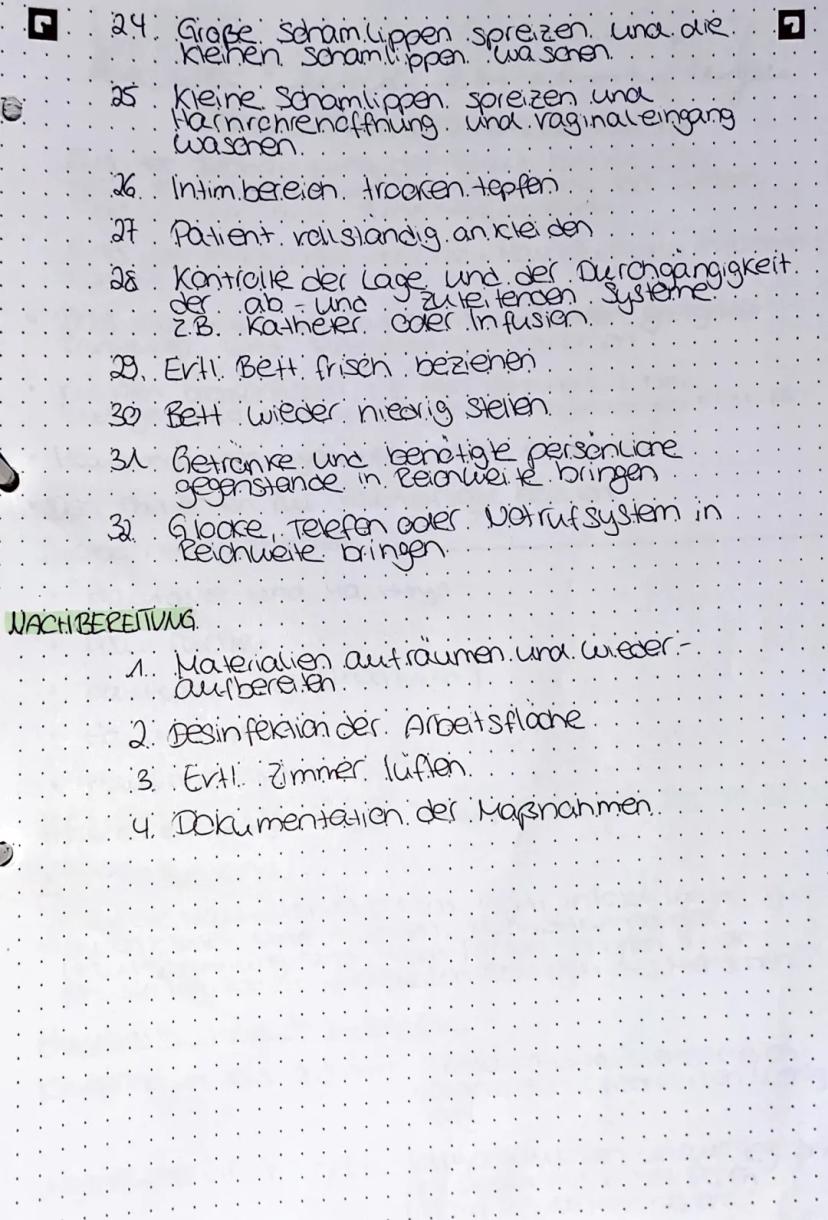 24. Große Schamlippen spreizen und die
kleinen Schamlippen waschen.
25. Kleine Schamlippen spreizen und
Harnröhrenöffnung und vaginaleingang
waschen.
26. Intimbereich trocken tepfen
27. Patient vollständig ankleiden
28. Kontrolle der Lage und der Durchgängigkeit
der ab- und zuleitenden Systeme
z.B. Katheter oder Infusion.
29. Evtl. Bett frisch beziehen
30 Bett wieder niedrig stellen
31 Getränke und benötigte persönliche
gegenstände in Reichweite bringen
32. Glocke, Telefon oder Notrufsystem in
Reichweite bringen.
NACHBEREITUNG
1. Materialien aufräumen und wieder-
aufbereiten.
2. Desinfektion der Arbeitsfläche
3. Evtl. Zimmer lüften.
4. Dokumentation der Maßnahmen.